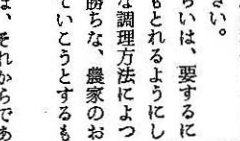 さい。
らいは、要するに
もとれるようにし
な調理方法によつ
勝ちな、農家のお
ていこうとするも
は、それからであ